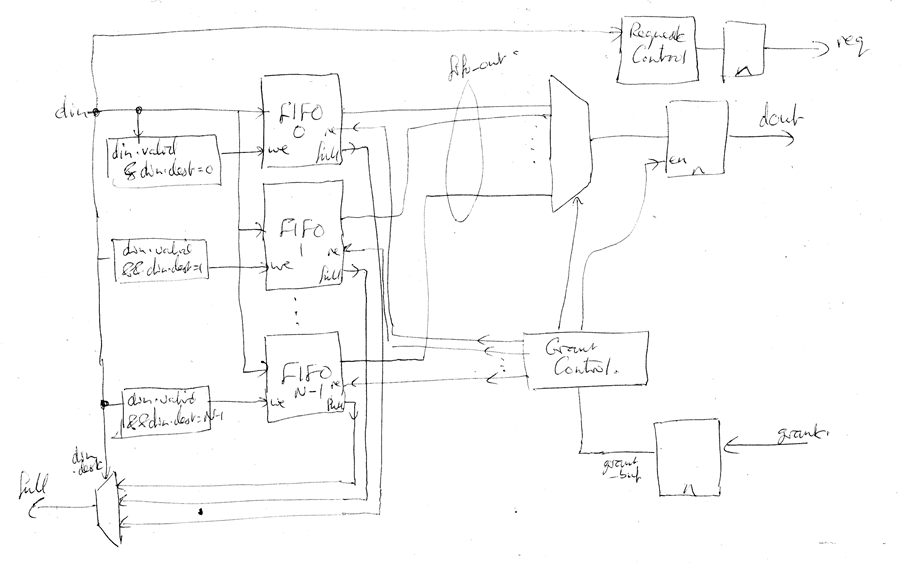 Request
Control
req
fifo_out
din
FIFO
0
re
we
full
din.valid
& din.dest=0
dout
en
FIFO
1
re
we
full
din.valid
&& din.dest=1
FIFO
N-1
re
we
full
din.valid
&& din.dest=N-1
Grant
Control.
grant.
grant
_buf
din
.dest
full